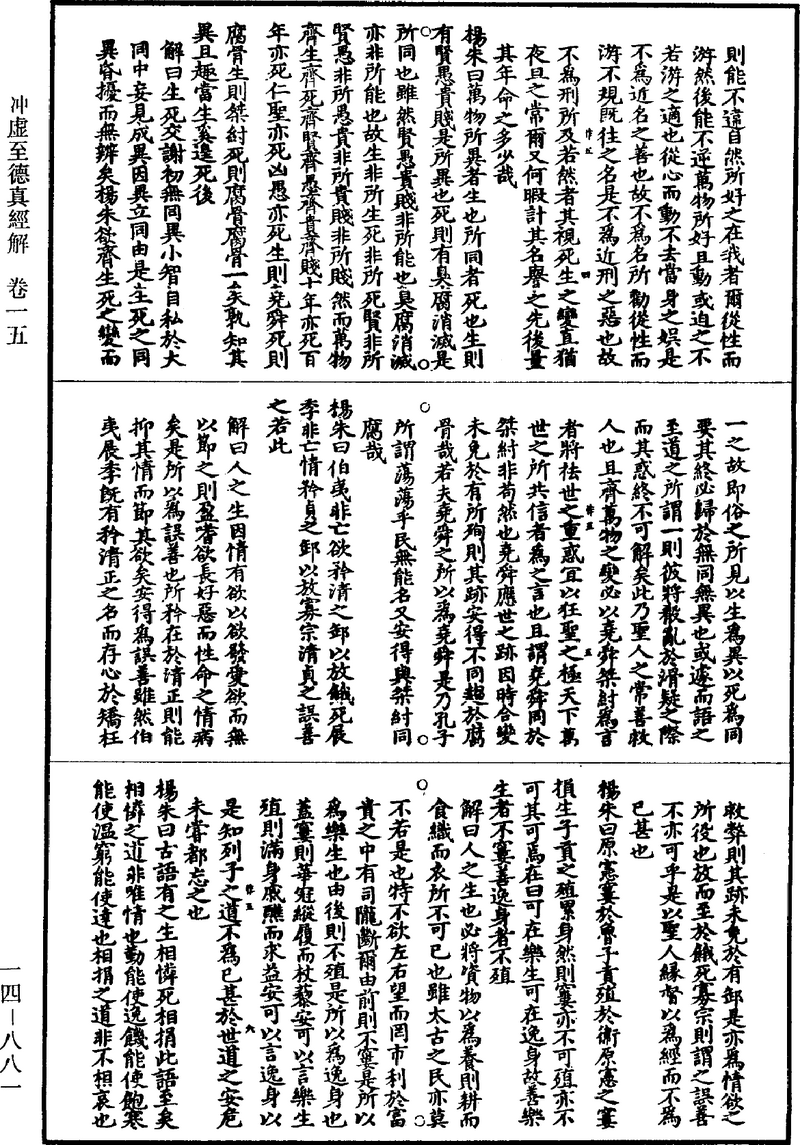 冲虛至德真經解　卷一五
一四—八八一
則能不違自然所好之在我者爾從性而
游然後能不逆萬物所好且動或迫之不
若游之適也從心而動不去當身之娛是
不爲近名之善也故不爲名所勸從性而
游不規既往之名是不爲近刑之惡也故
不爲刑所及若然者其視死生之變直猶
夜旦之常爾又何暇計其名譽之先後量
其年命之多少哉
楊朱曰萬物所異者生也所同者死也生則
有賢愚貴賤是所異也死則有臭腐消滅是
所同也雖然賢愚貴賤非所能也臭腐消滅
亦非所能也故生非所生死非所死賢非所
賢愚非所愚貴非所貴賤非所賤然而萬物
齊生齊死齊賢齊愚齊貴齊賤十年亦死百
年亦死仁聖亦死凶愚亦死生則堯舜死則
腐骨生則桀紂死則腐骨腐骨一矣孰知其
異且趣當生奚遑死後
解曰生死交謝初無同異小智自私於大
同中妄見成異因異立同由是生死之同
異昏擾而無辨矣楊朱欲齊生死之變而
一之故即俗之所見以生爲異以死爲同
要其終必歸於無同無異也或遽而語之
至道之所謂一則彼將殽亂於滑疑之際
而其惑終不可解矣此乃聖人之常善救
人也且齊萬物之變必以堯舜桀紂爲言
者將祛世之重惑宜以狂聖之極天下萬
世之所共信者爲之言也且謂堯舜同於
桀紂非苟然也堯舜應世之跡因時合變
未免於有所殉則其跡安得不同趨於腐
骨哉若夫堯舜之所以爲堯舜是乃孔子
所謂蕩蕩乎民無能名又安得與桀紂同
腐哉
楊朱曰伯夷非亡欲矜清之卸以放餓死展
季非亡情矜貞之卸以放寡宗清貞之誤善
之若此
解曰人之生因情有欲以欲發愛欲而無
以節之則盈嗜欲長好惡而性命之情病
矣是所以爲誤善也所矜在於清正則能
抑其情而節其欲矣安得爲誤善雖然伯
夷展季既有矜清正之名而存心於矯枉
救弊則其跡未免於有卸是亦爲情欲之
所役也放而至於餓死寡宗則謂之誤善
不亦可乎是以聖人緣督以爲經而不爲
已甚也
楊朱曰原憲窶於魯子貢殖於衛原憲之窶
損生子貢之殖累身然則窶亦不可殖亦不
可其可焉在曰可在樂生可在逸身故善樂
生者不窶善逸身者不殖
解曰人之生也必將資物以爲養則耕而
食織而衣所不可已也雖太古之民亦莫
不若是也特不欲左右望而罔市利於富
貴之中有司隴斷爾由前則不窶是所以
爲樂生也由後則不殖是所以爲逸身也
蓋窶則華冠縰履而杖藜安可以言樂生
殖則滿身戚醮而求益安可以言逸身以
是知列子之道不爲已甚於世道之安危
未嘗都忘之也
楊朱曰古語有之生相憐死相捐此語至矣
相憐之道非唯情也勤能使逸饑能使飽寒
能使溫窮能使達也相捐之道非不相哀也